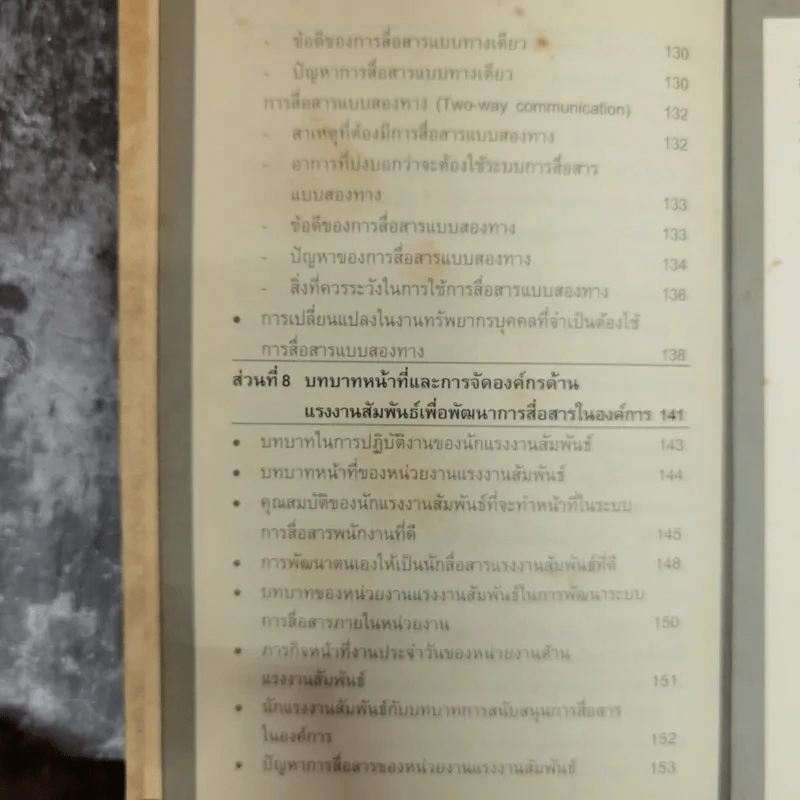 - ข้อดีของการสื่อสารแบบทางเดียว 130
- ปัญหาการสื่อสารแบบทางเดียว 130
การสื่อสารแบบสองทาง (Two-way communication) 132
- สาเหตุที่ต้องมีการสื่อสารแบบสองทาง 132
- อาการที่บ่งบอกว่าจะต้องใช้ระบบการสื่อสาร
แบบสองทาง 133
- ข้อดีของการสื่อสารแบบสองทาง 133
- ปัญหาของการสื่อสารแบบสองทาง 134
- สิ่งที่ควรระวังในการใช้การสื่อสารแบบสองทาง 136
• การเปลี่ยนแปลงในงานทรัพยากรบุคคลที่จำเป็นต้องใช้
การสื่อสารแบบสองทาง 138
ส่วนที่ 8 บทบาทหน้าที่และการจัดองค์กรด้าน
แรงงานสัมพันธ์เพื่อพัฒนาการสื่อสารในองค์การ 141
• บทบาทในการปฏิบัติงานของนักแรงงานสัมพันธ์ 143
• บทบาทหน้าที่ของหน่วยงานแรงงานสัมพันธ์ 144
• คุณสมบัติของนักแรงงานสัมพันธ์ที่จะทำหน้าที่ในระบบ
การสื่อสารพนักงานที่ดี 145
• การพัฒนาตนเองให้เป็นนักสื่อสารแรงงานสัมพันธ์ที่ดี 148
• บทบาทของหน่วยงานแรงงานสัมพันธ์ในการพัฒนาระบบ
การสื่อสารภายในหน่วยงาน 150
• ภารกิจหน้าที่งานประจำวันของหน่วยงานด้าน
แรงงานสัมพันธ์ 151
• นักแรงงานสัมพันธ์กับบทบาทการสนับสนุนการสื่อสาร
ในองค์การ 152
• ปัญหาการสื่อสารของหน่วยงานแรงงานสัมพันธ์ 153